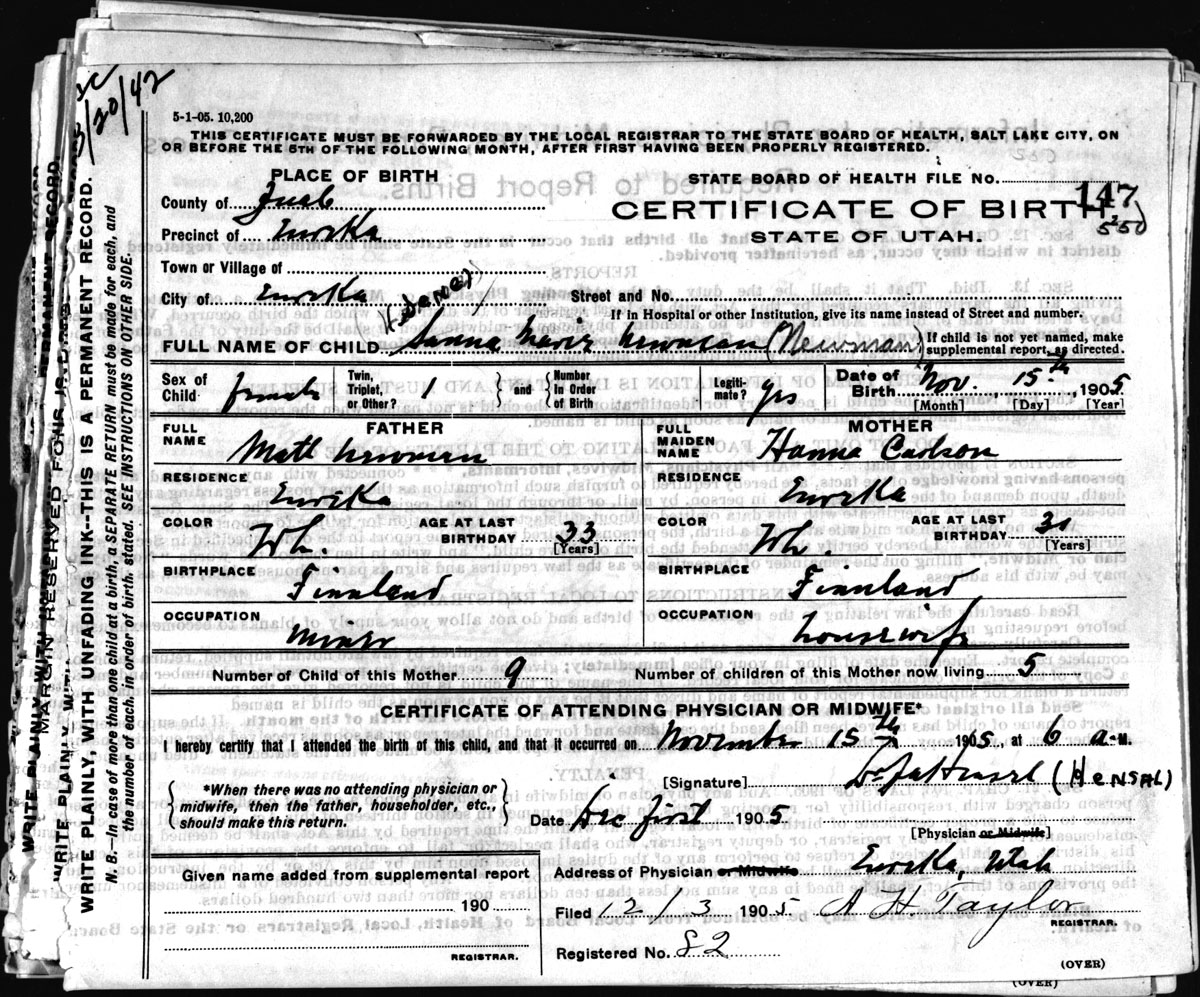 5-1-05. 10,200
20/42
THIS CERTIFICATE MUST BE FORWARDED BY THE LOCAL REGISTRAR TO THE STATE BOARD OF HEALTH, SALT LAKE CITY, ON
OR BEFORE THE 5TH OF THE FOLLOWING MONTH, AFTER FIRST HAVING BEEN PROPERLY REGISTERED.
PLACE OF BIRTH
STATE BOARD OF HEALTH FILE NO.
147
550
County of Juab
CERTIFICATE OF BIRTH
Precinct of Eureka
STATE OF UTAH.
Town or Village of
City of Eureka
Street and No.
If in Hospital or other Institution, give its name instead of Street and number.
FULL NAME OF CHILD Marie Newman (Newman)
If child is not yet named, make
supplemental report, as directed.
Sex of Child female
Twin, Triplet, or Other? 1
and
Number In Order of Birth
Legitimate? yes
Date of Birth Nov. 15th, 1905
[Month] [Day] [Year]
FATHER
FULL NAME Matt Newman
RESIDENCE Eureka
COLOR Wh.
AGE AT LAST BIRTHDAY 33
[Years]
BIRTHPLACE Finnland
OCCUPATION Miner
MOTHER
FULL MAIDEN NAME Hanna Carlson
RESIDENCE Eureka
COLOR Wh.
AGE AT LAST BIRTHDAY
[Years]
BIRTHPLACE Finnland
OCCUPATION housewife
Number of Child of this Mother 9
Number of children of this Mother now living 5
CERTIFICATE OF ATTENDING PHYSICIAN OR MIDWIFE*
I hereby certify that I attended the birth of this child, and that it occurred on November 15th 1905, at 6 a.M.
[Signature] (HENSAL)
*When there was no attending physician or
midwife, then the father, householder, etc.,
should make this return.
Date Dec first 1905
[Physician or Midwife]
Given name added from supplemental report
190
REGISTRAR.
Address of Physician or Midwife Eureka, Utah
Filed 12/3 1905 A H Taylor
REGISTRAR.
Registered No. 82
(OVER)
(OVER)
MARGIN RESERVED FOR
WRITE PLAINLY, WITH UNFADING INK--THIS IS A PERMANENT RECORD.
N. B.—In case of more than one child at a birth, a SEPARATE RETURN must be made for each, and
the number of each, in order of birth, stated. SEE INSTRUCTIONS ON OTHER SIDE.